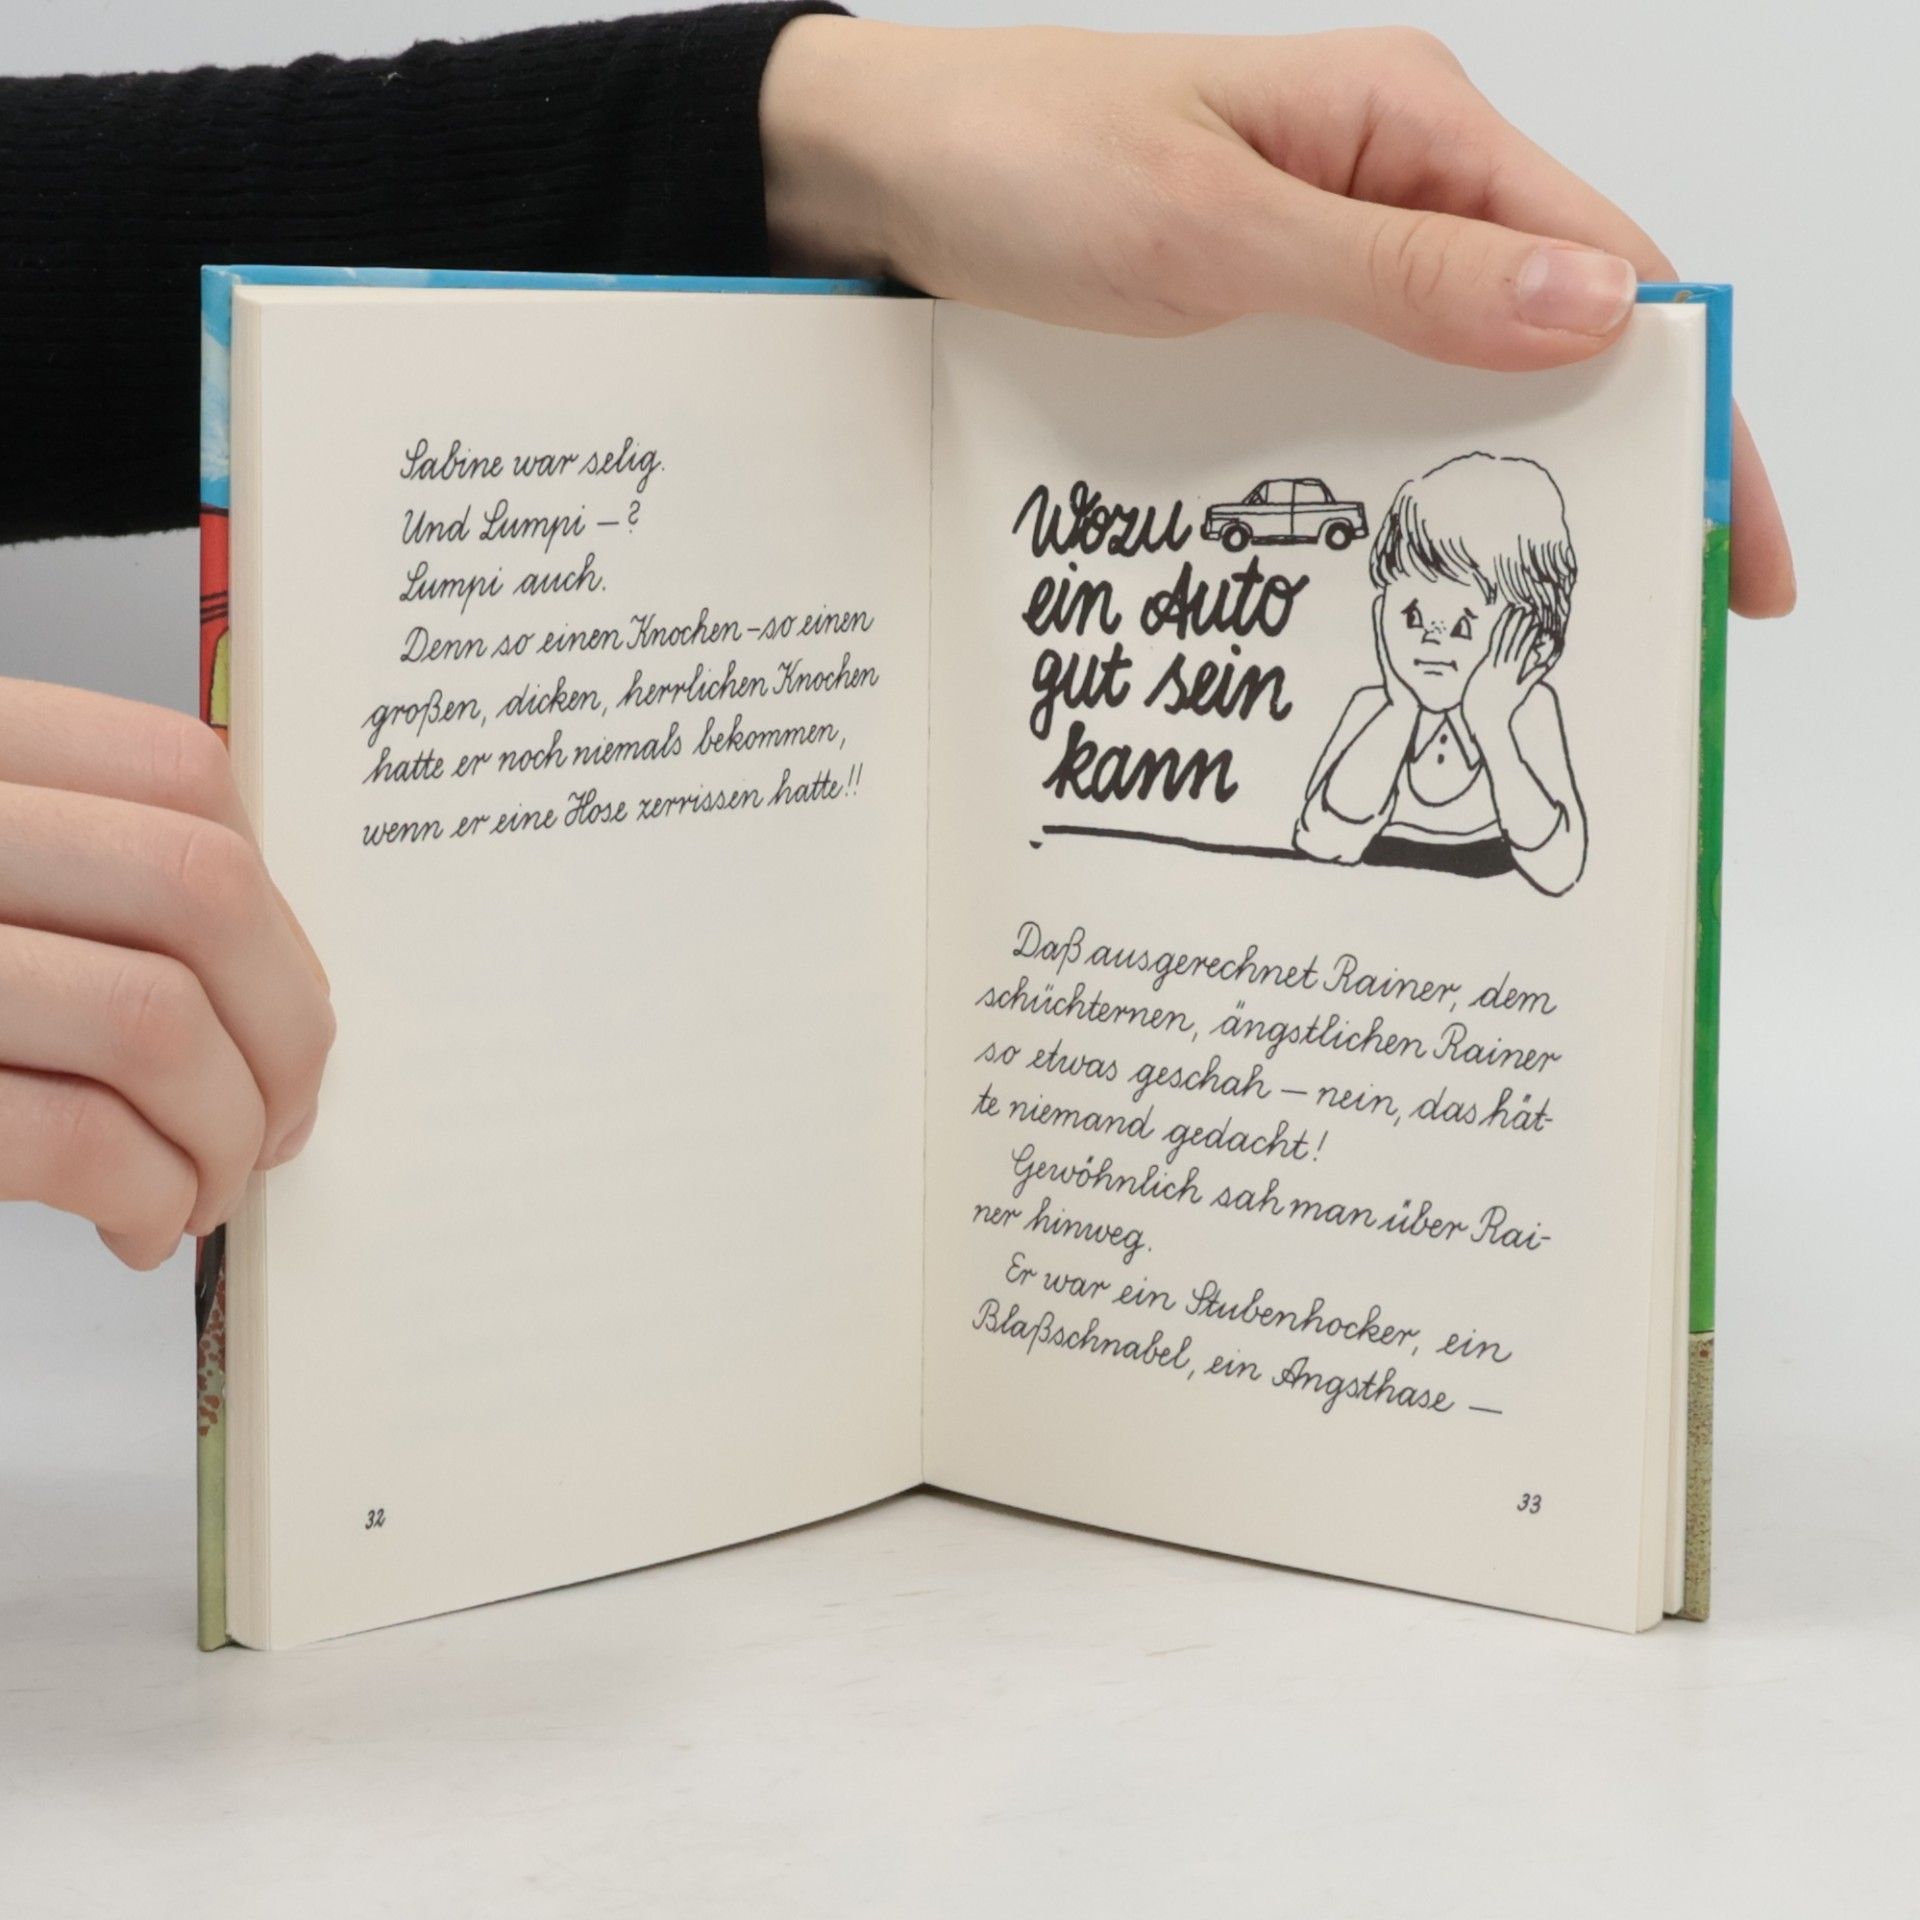 Sabine war selig.
Und Lumpi – ?
Lumpi auch.
Denn so einen Knochen – so einen
großen, dicken, herrlichen Knochen
hatte er noch niemals bekommen,
wenn er eine Hose zerrissen hatte!!
32
Wozu
ein Auto
gut sein
kann
Daß ausgerechnet Rainer, dem
schüchternen, ängstlichen Rainer
so etwas geschah – nein, das hät-
te niemand gedacht!
Gewöhnlich sah man über Rai-
ner hinweg.
Er war ein Stubenhocker, ein
Blaßschnabel, ein Angsthase –
33